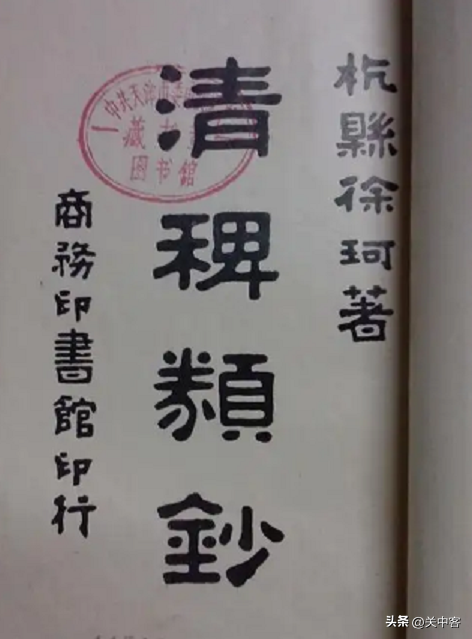 杭縣徐珂著
清稗類鈔
商務印書館印行
中共天津市委
藏书
图书馆
头条 @关中客